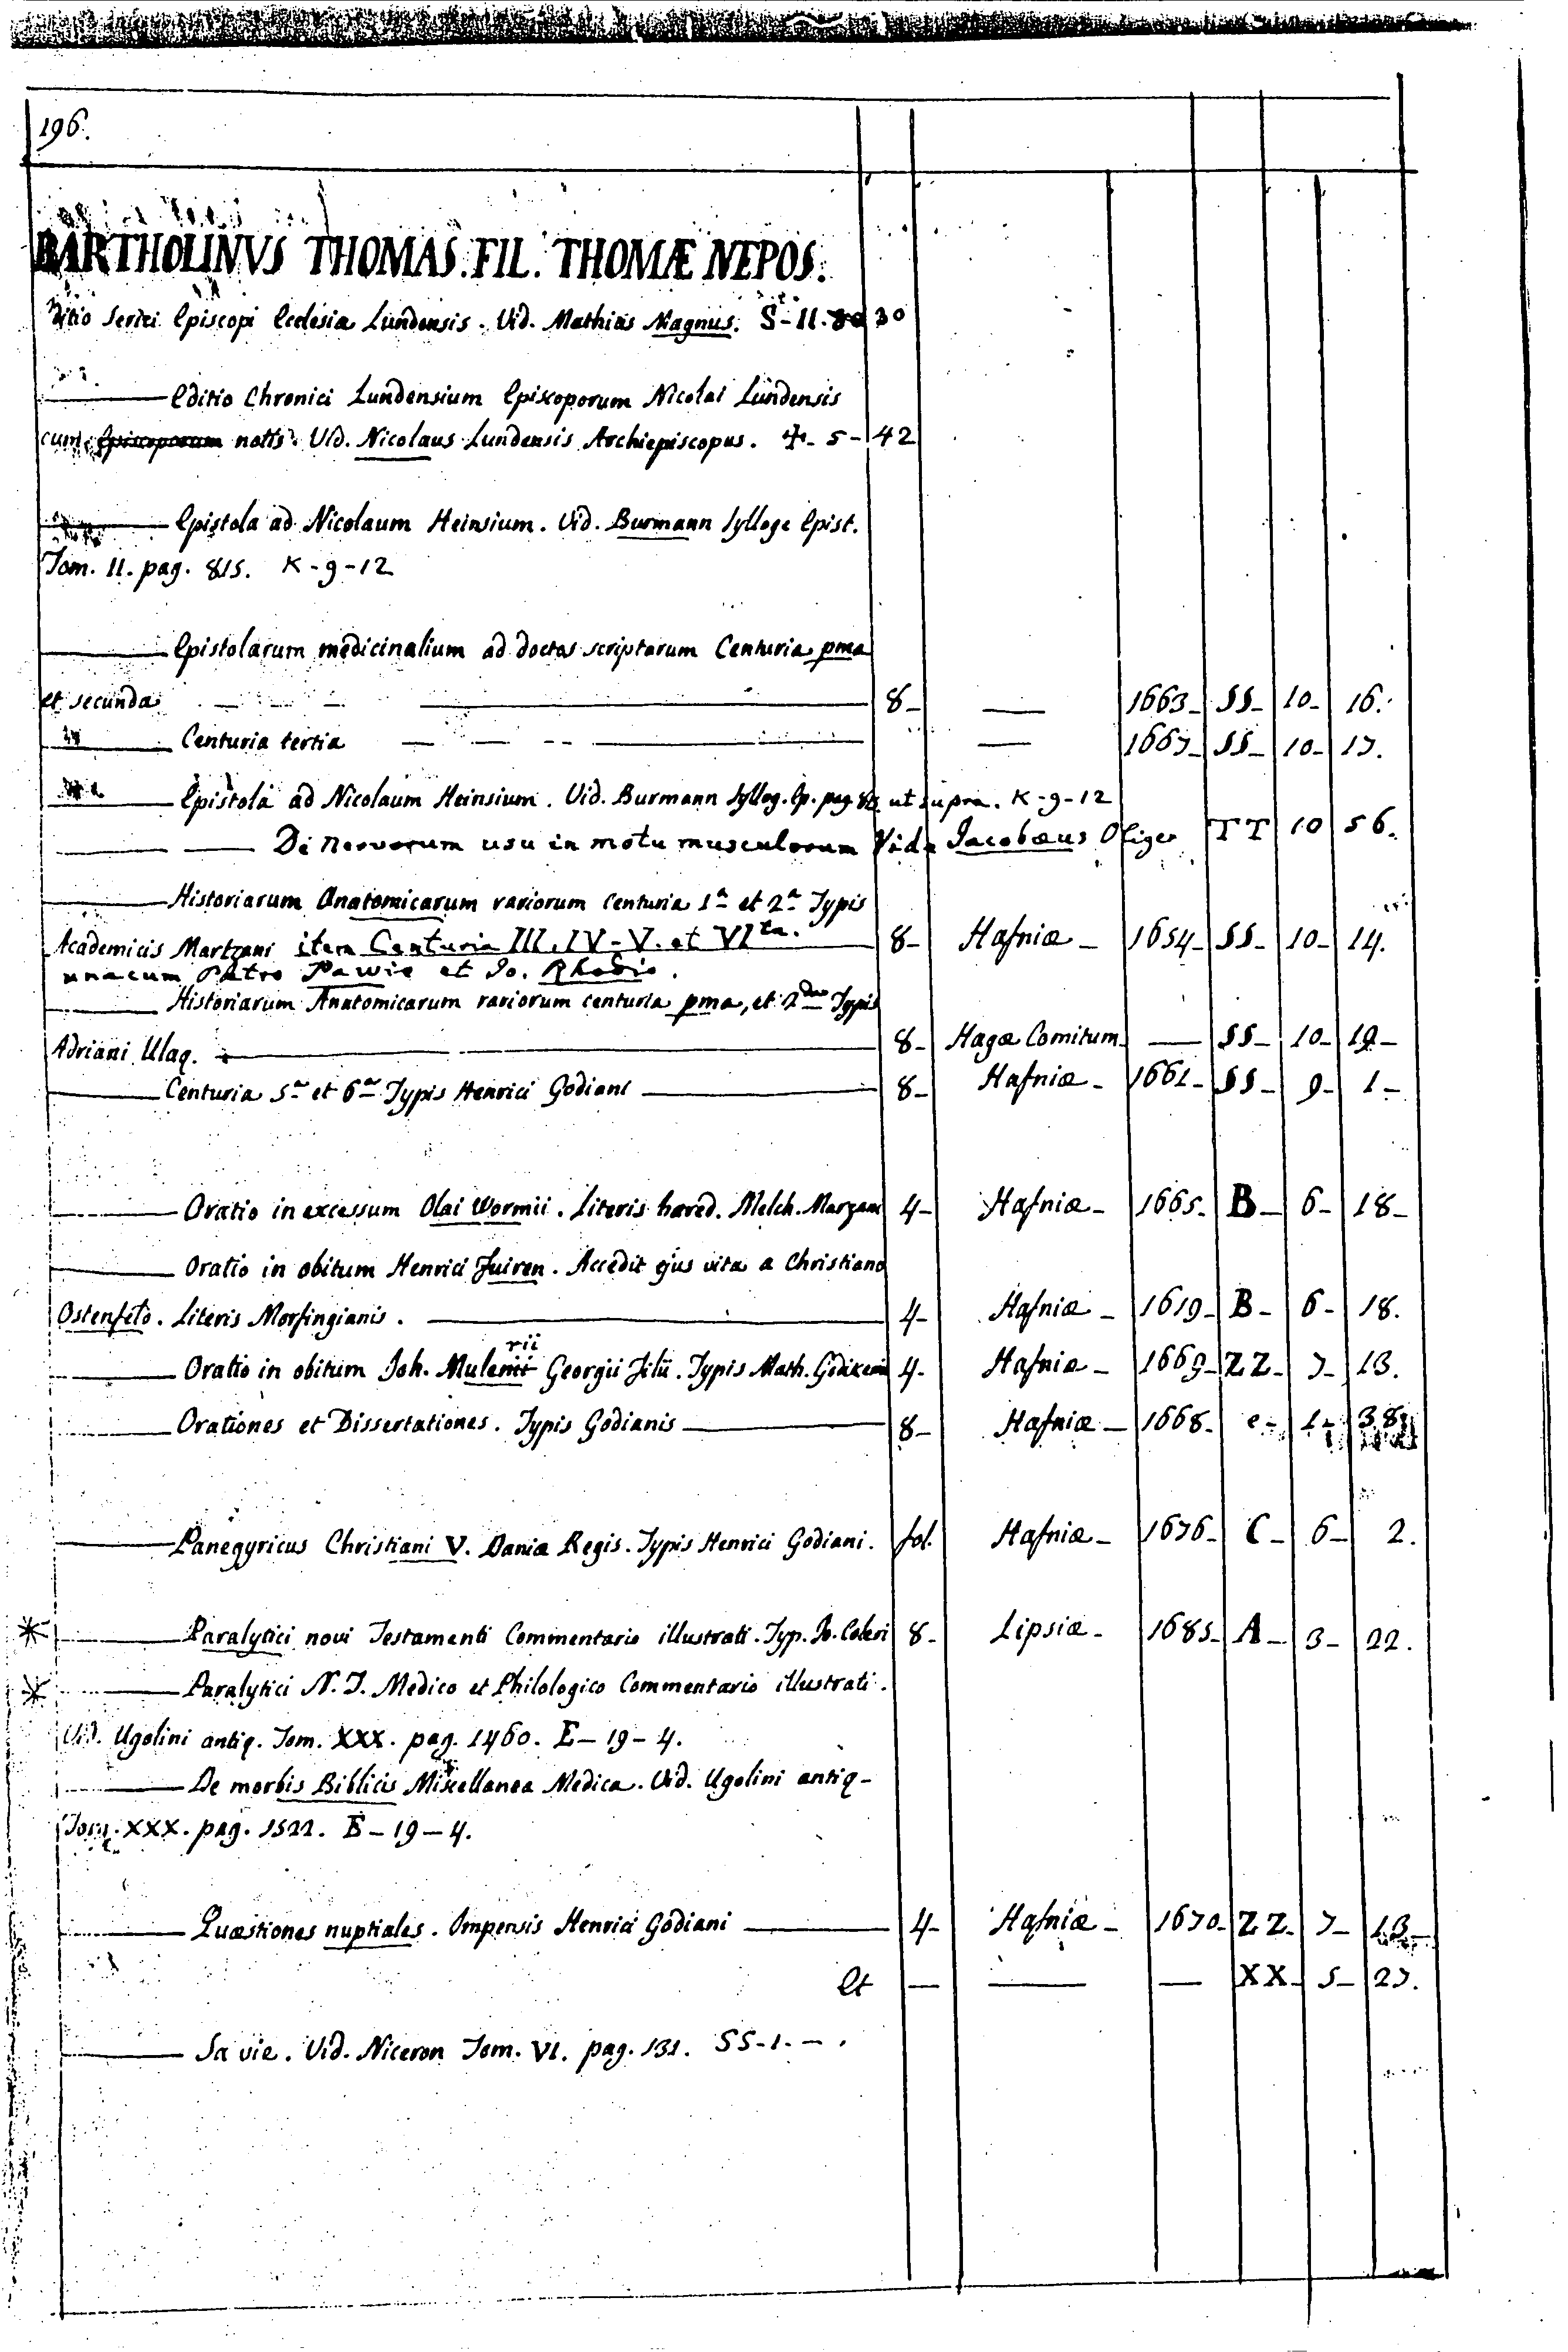 196.
BARTHOLINVS THOMAS. FIL. THOMÆ NEPOS.
ditio seriei Episcopi Ecclesiæ Lundensis. Vid. Mathias Magnus. S-II. 30
Editio Chronici Lundensium Episcoporum Nicolai Lundensis
cum Episcoporum notis. Vid. Nicolaus Lundensis Archiepiscopus. ☩- 5-42
Epistola ad Nicolaum Heinsium. Vid. Burmann Sylloge Epist.
Tom. II. pag. 815. K-9-12
Epistolarum medicinalium ad doctas scriptarum Centuria pma
et secunda 8- — 1663- SS- 10- 16.
Centuria tertia — 1667- SS- 10- 17.
Epistola ad Nicolaum Heinsium. Vid. Burmann Syllog. Ep. pag. ut supra. K-9-12
De nervorum usu in motu musculorum Vide Jacobæus Oliger TT 10 56.
Historiarum Anatomicarum rariorum Centuria 1a et 2a Typis
Academicis Martzani item Centuria III. IV-V. et VIta. 8- Hafniæ- 1654- SS- 10- 14.
unacum Patro Pawie et Jo. Rhodio.
Historiarum Anatomicarum rariorum centuria pma, et 2da Typis
Adriani Ulaq. 8- Hagæ Comitum- — SS- 10- 19-
Centuria 5a et 6a Typis Henrici Godiani 8- Hafniæ- 1661- SS- 9- 1-
Oratio in excessum Olai Wormii. Literis hæred. Melch. Marzani 4- Hafniæ- 1665- B- 6- 18-
Oratio in obitum Henrici Fuiren. Accedit ejus vita a Christiano
Ostenfelo. Literis Morfingianis. 4- Hafniæ- 1619- B- 6- 18.
rii
Oratio in obitum Joh. Mulenii Georgii Filii. Typis Math. 4- Hafniæ- 1669- ZZ- 7- 13.
Orationes et Dissertationes. Typis Godianis 8- Hafniæ- 1668- e- 1- 38
Panegyricus Christiani V. Daniæ Regis. Typis Henrici Godiani. fol. Hafniæ- 1676- C- 6- 2.
* Paralytici novi Testamenti Commentario illustrati. Typ. Jo. Coleri 8- Lipsiæ- 1685- A- 3- 22.
* Paralytici N. T. Medico et Philologico Commentario illustrati.
Vid. Ugolini antiq. Tom. XXX. pag. 1460. E-19-4.
De morbis Biblicis Miscellanea Medica. Vid. Ugolini antiq-
Tom. XXX. pag. 1522. E-19-4.
Quæstiones nuptiales. Impensis Henrici Godiani 4- Hafniæ- 1670- ZZ- 7- 13-
Et — — — XX- 5- 27.
Sa vie. Vid. Niceron Tom. VI. pag. 131. SS-1.-.